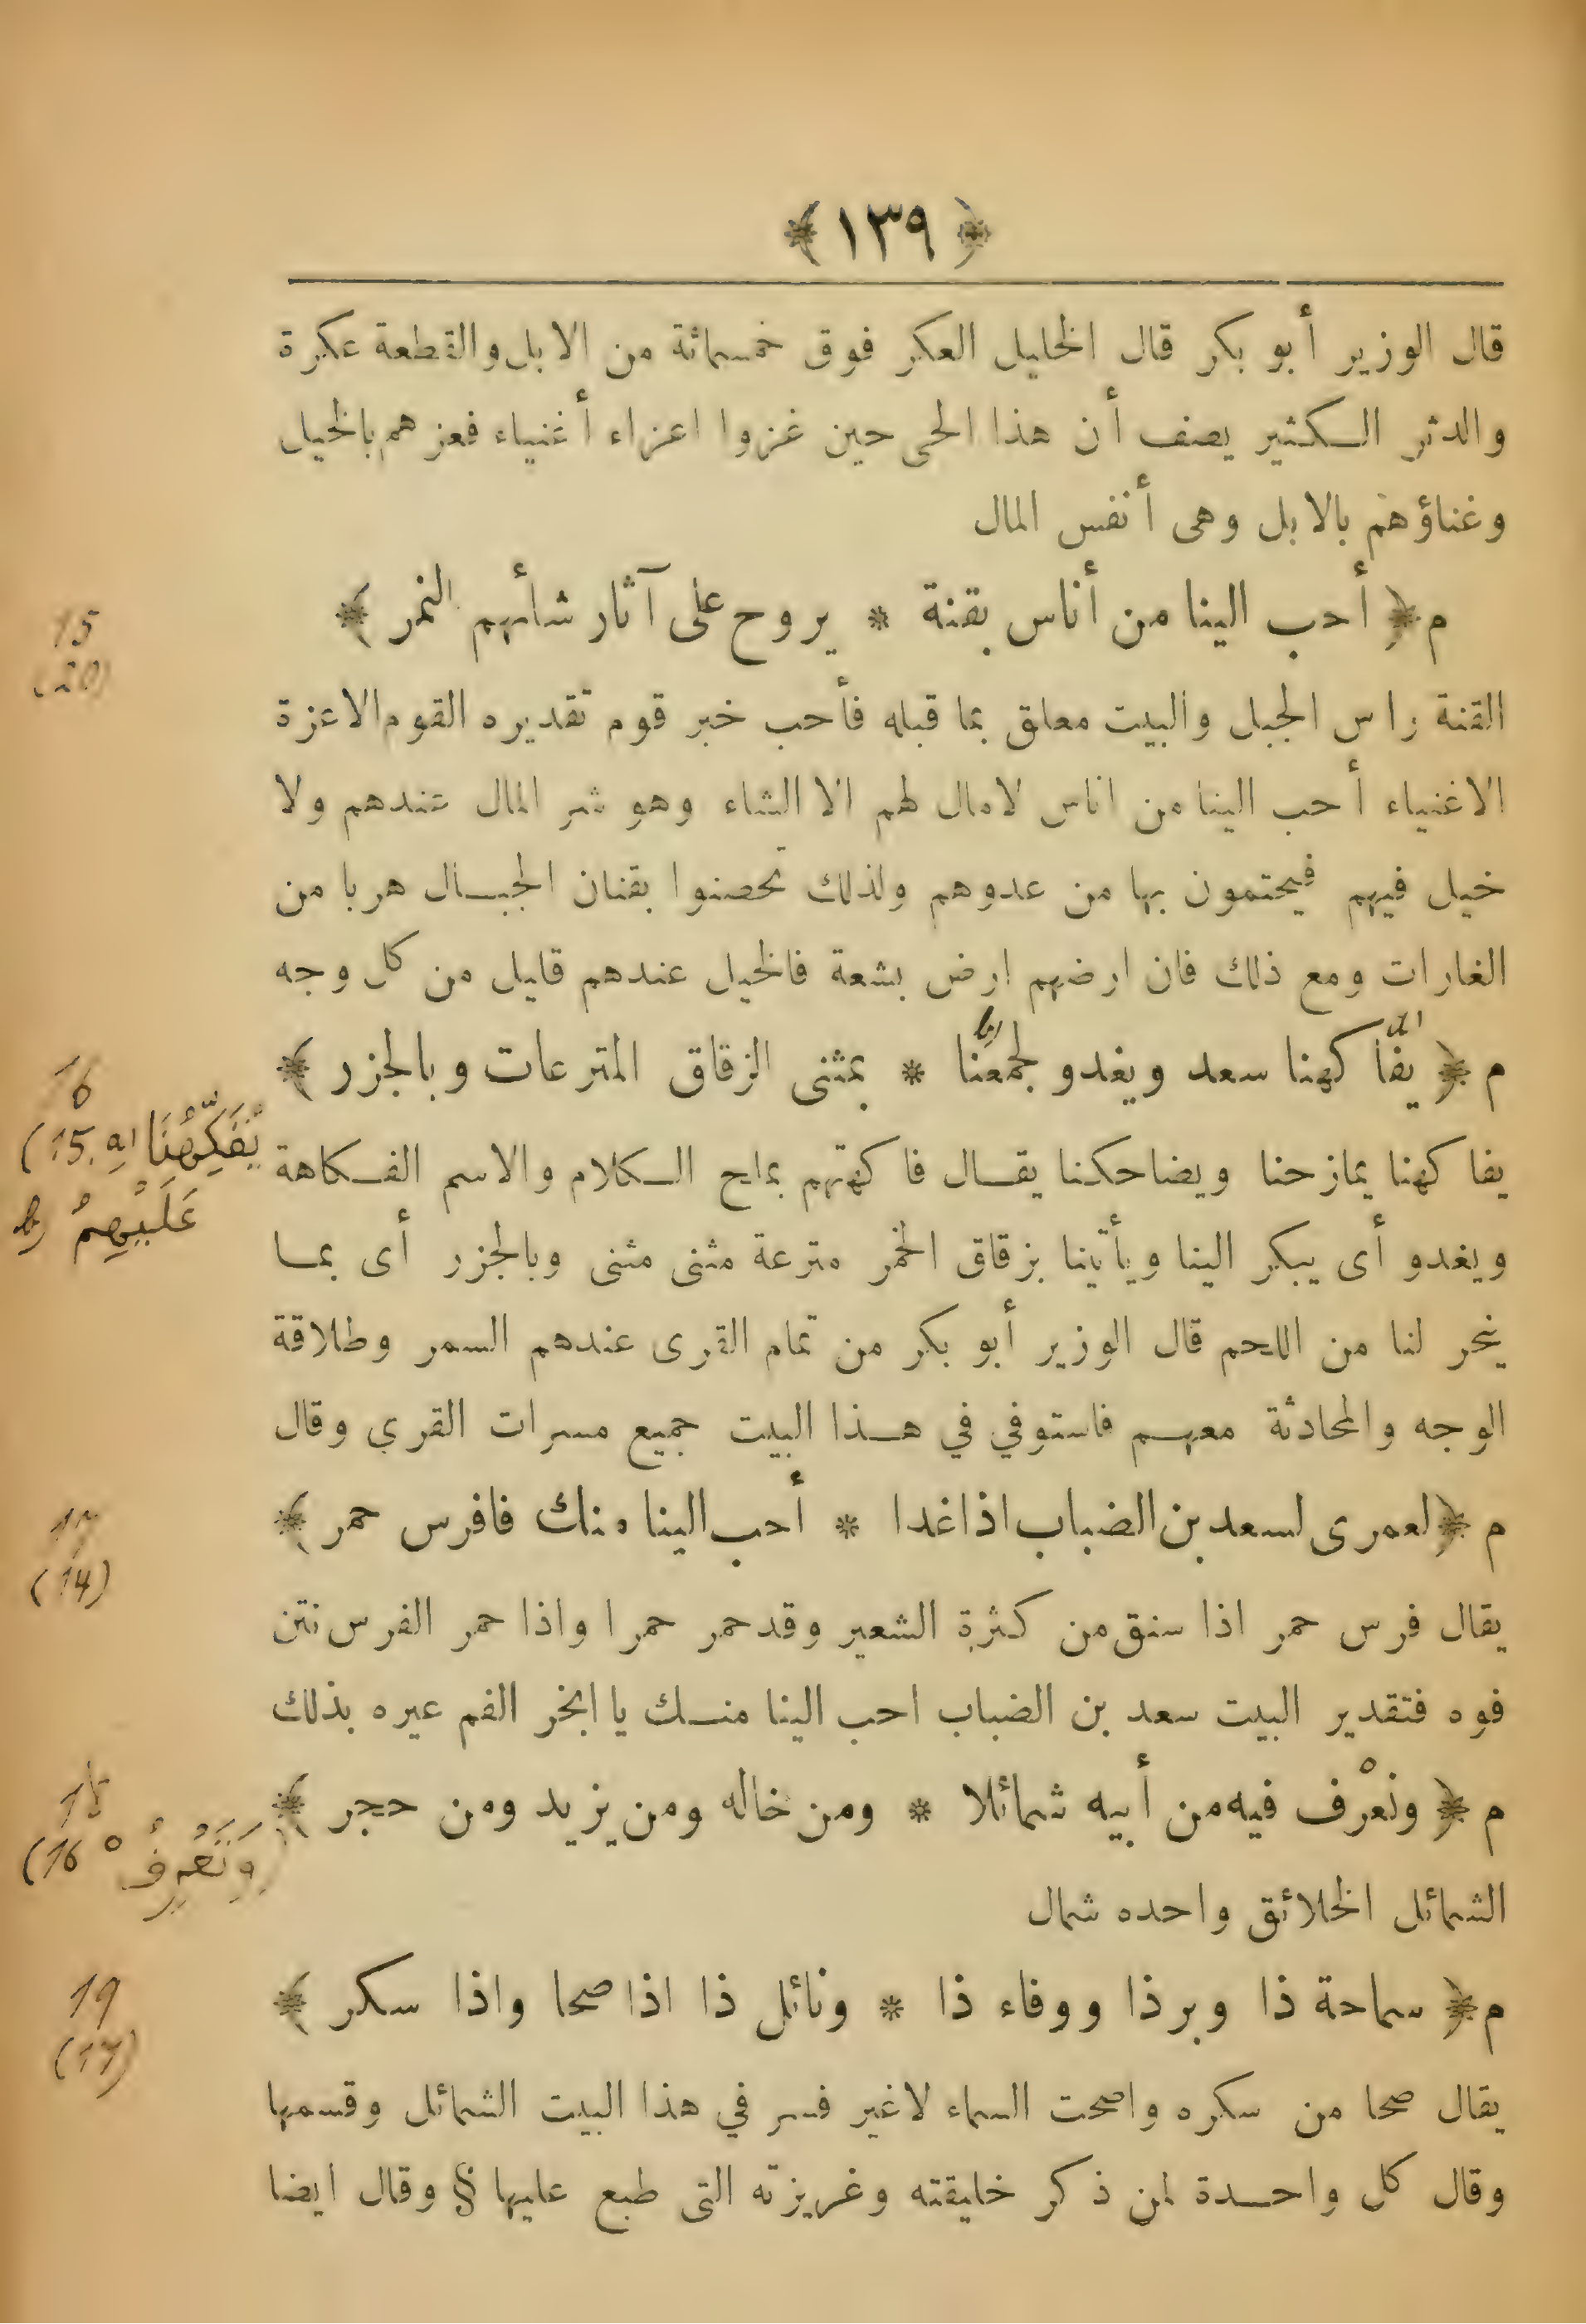 ﴿ ١٣٩ ﴾
قال الوزير أبو بكر قال الخليل العكر فوق خمسمائة من الابل والقطعة عكرة
والدثر الكثير يصف أن هذا الحى حين غزوا اعزاء أغنياء فعزهم بالخيل
وغناؤهم بالابل وهى أنفس المال
م ﴿ أحب الينا من أناس بقنة * يروح على آثار شأئهم النمر ﴾
15
(20)
القنة راس الجبل والبيت معلق بما قبله فأحب خبر قوم تقديره القوم الاعزة
الاغنياء أحب الينا من اناس لامال لهم الا الشاء وهو شر المال عندهم ولا
خيل فيهم فيحتمون بها من عدوهم ولذلك تحصنوا بقنان الجبال هربا من
الغارات ومع ذلك فان ارضهم ارض بشعة فالخيل عندهم قليل من كل وجه
م ﴿ يفّاكهنا سعد ويغدو لجمعنا * بمثنى الزقاق المترعات وبالجزر ﴾
16
(15 a) يُفَكِّهُنَا
b) عَلَيْهِمُ
يفاكهنا يمازحنا ويضاحكنا يقال فاكهتهم بملح الكلام والاسم الفكاهة
ويغدو أى يبكر الينا ويأتينا بزقاق الخمر مترعة مثنى مثنى وبالجزر أى بما
ينحر لنا من اللحم قال الوزير أبو بكر من تمام القرى عندهم السمر وطلاقة
الوجه والمحادثة معهم فاستوفي في هذا البيت جميع مسرات القري وقال
م ﴿ لعمرى لسعد بن الضباب اذا غدا * أحب الينا منك فافرس حمر ﴾
17
(14)
يقال فرس حمر اذا سنق من كثرة الشعير وقد حمر حمرا واذا حمر الفرس نتن
فوه فتقدير البيت سعد بن الضباب احب الينا منك يا ابخر الفم عيره بذلك
م ﴿ ونعْرف فيه من أبيه شمائلا * ومن خاله ومن يزيد ومن حجر ﴾
18
(16 وَتَعْرِفُ
الشمائل الخلائق واحده شمال
م ﴿ سماحة ذا وبر ذا ووفاء ذا * ونائل ذا اذا صحا واذا سكر ﴾
19
(17)
يقال صحا من سكره واصحت السماء لاغير فسر في هذا البيت الشمائل وقسمها
وقال كل واحدة لمن ذكر خليقته وغريزته التى طبع عليها § وقال ايضا